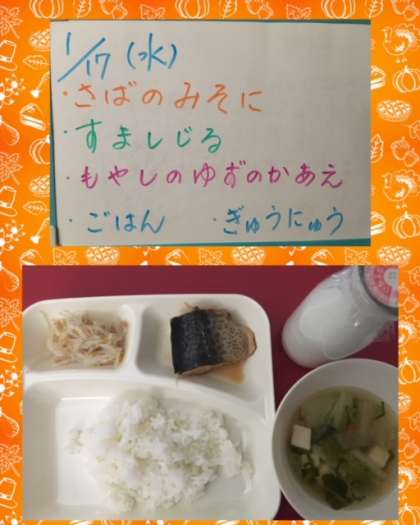 1/17(水)
・さばのみそに
・すましじる
・もやしのゆずのかあえ
・ごはん ・ぎゅうにゅう